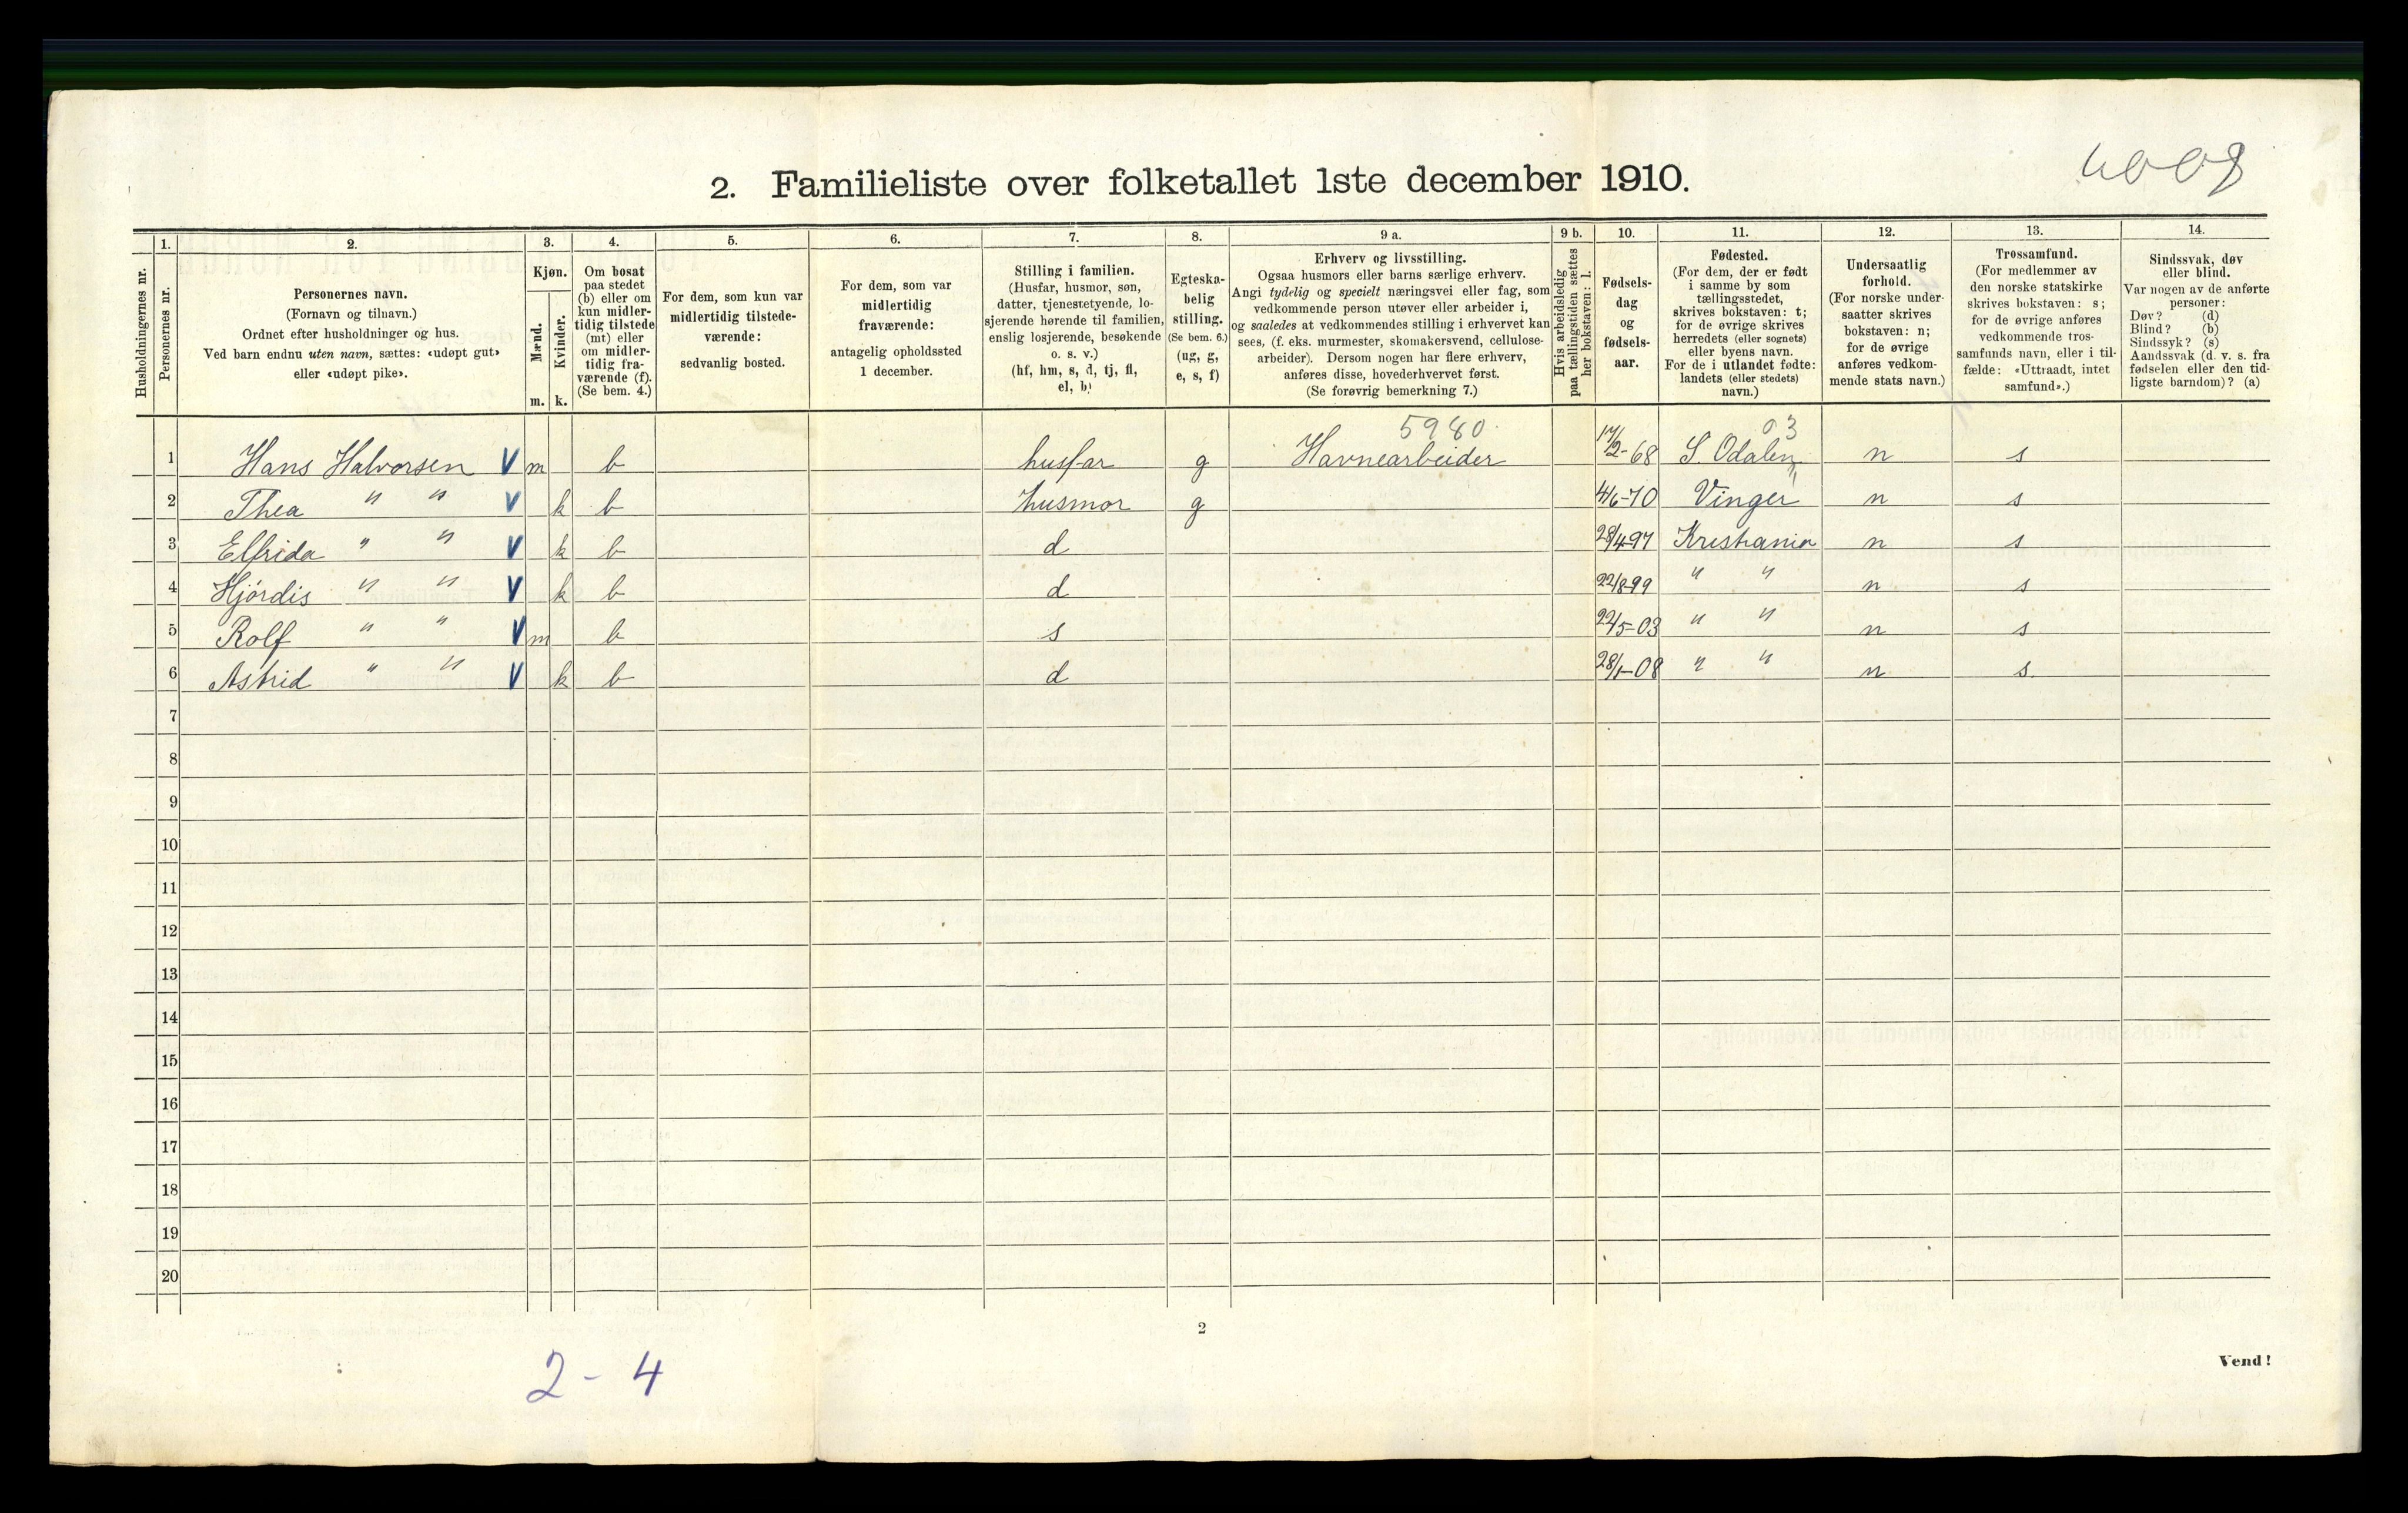 4008
2. Familieliste over folketallet 1ste december 1910.
Husholdningernes nr.
1. Personernes nr.
2. Personernes navn. (Fornavn og tilnavn.) Ordnet efter husholdninger og hus. Ved barn endnu uten navn, sættes: «udøpt gut» eller «udøpt pike».
3. Kjøn. Mænd. m. Kvinder. k.
4. Om bosat paa stedet (b) eller om kun midler-tidig tilstede (mt) eller om midler-tidig fra-værende (f). (Se bem. 4.)
5. For dem, som kun var midlertidig tilstede-værende: sedvanlig bosted.
6. For dem, som var midlertidig fraværende: antagelig opholdssted 1 december.
7. Stilling i familien. (Husfar, husmor, søn, datter, tjenestetyende, lo-sjerende hørende til familien, enslig losjerende, besøkende o. s. v.) (hf, hm, s, d, tj, fl, el, b)
8. Egteska-belig stilling. (Se bem. 6.) (ug, g, e, s, f)
9 a. Erhverv og livsstilling. Ogsaa husmors eller barns særlige erhverv. Angi tydelig og specielt næringsvei eller fag, som vedkommende person utøver eller arbeider i, og saaledes at vedkommendes stilling i erhvervet kan sees, (f. eks. murmester, skomakersvend, cellulose-arbeider). Dersom nogen har flere erhverv, anføres disse, hovederhvervet først. (Se forøvrig bemerkning 7.)
9 b. Hvis arbeidsledig paa tællingstiden sættes her bokstaven: l.
10. Fødsels-dag og fødsels-aar.
11. Fødested. (For dem, der er født i samme by som tællingsstedet, skrives bokstaven: t; for de øvrige skrives herredets (eller sognets) eller byens navn. For de i utlandet fødte: landets (eller stedets) navn.)
12. Undersaatlig forhold. (For norske under-saatter skrives bokstaven: n; for de øvrige anføres vedkom-mende stats navn.)
13. Trossamfund. (For medlemmer av den norske statskirke skrives bokstaven: s; for de øvrige anføres vedkommende tros-samfunds navn, eller i til-fælde: «Uttraadt, intet samfund».)
14. Sindssvak, døv eller blind. Var nogen av de anførte personer: Døv? (d) Blind? (b) Sindssyk? (s) Aandssvak (d. v. s. fra fødselen eller den tid-ligste barndom)? (a)
5980 03
1 Hans Halvorsen V m b husfar g Havnearbeider 17/2-68 S. Odalen n s
2 Thea " " V k b husmor g 4/6-70 Vinger n s
3 Elfrida " " V k b d 28/4-97 Kristiania n s
4 Hjördis " " V k b d 22/8-99 " " n s
5 Rolf " " V m b s 22/5-03 " " n s
6 Astrid " " V k b d 28/1-08 " " n s.
7
8
9
10
11
12
13
14
15
16
17
18
19
20
2
Vend!
2 - 4